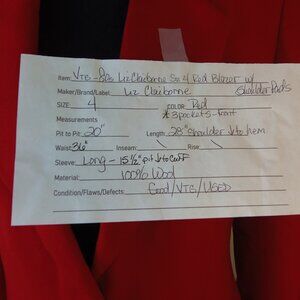 Item: Vtg - 80s Liz Claiborne Sz 4 Red Blazer w/
Maker/Brand/Label: Liz Claiborne Shoulder Pads
SIZE: 4 COLOR: Red
Measurements * 3 pockets - front
Pit to Pit: 20" Length: 28" shoulder to hem
Waist: 36" Inseam: \ Rise: \
Sleeve: Long - 15 1/2" pit to cuff
Material: 100% Wool
Condition/Flaws/Defects: Good/VTG/USED